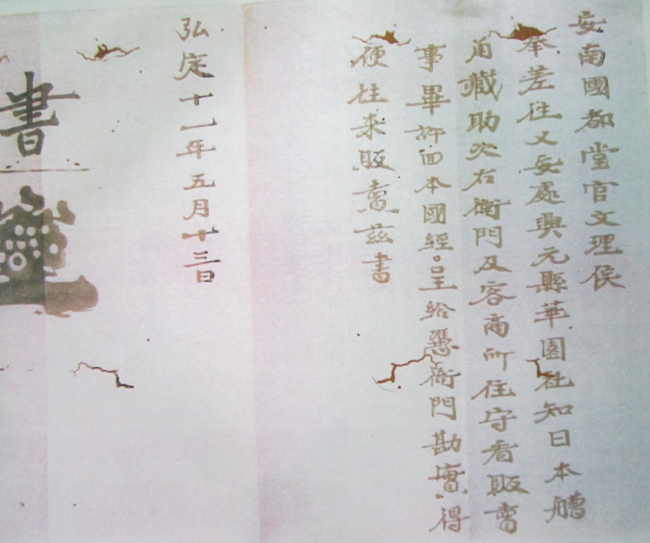 安南國都堂官文理侯
奉差徃乂安處興元縣華園社知日本艚
角藏助次右衛門及客商所住守看販賣
事畢許回本國經呈給憑衙門勘實得
便徃来販賣茲書
弘定十一年五月十三日
書